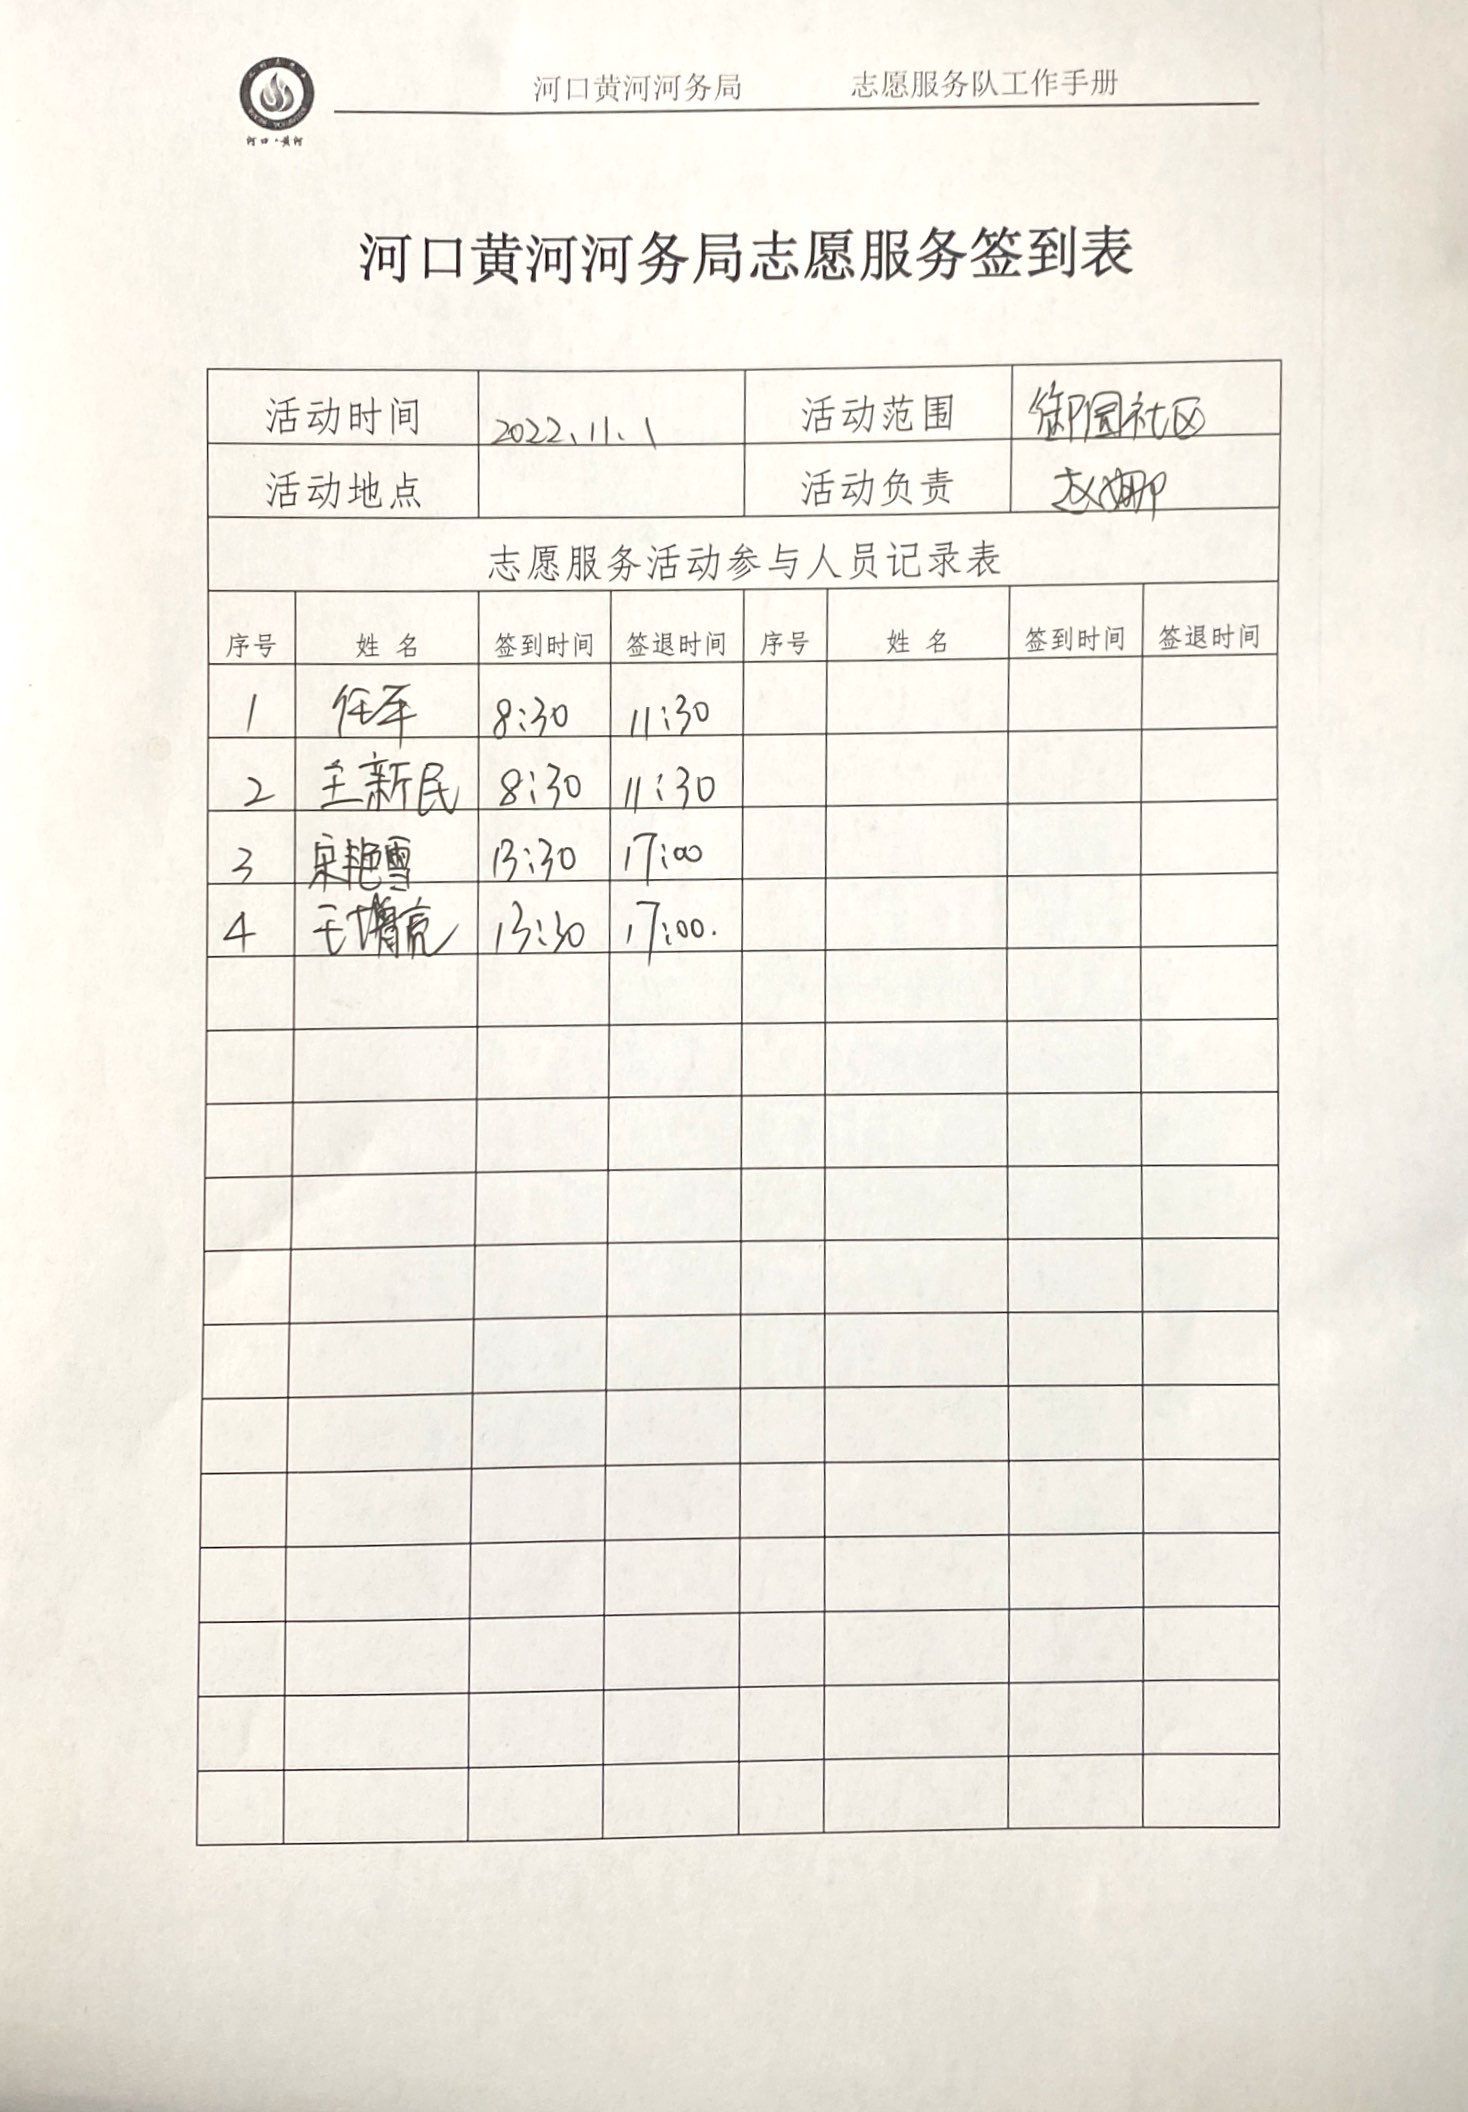 河口黄河河务局 志愿服务队工作手册
河口·黄河
河口黄河河务局志愿服务签到表
活动时间 2022.11.1 活动范围 御园社区
活动地点 活动负责 赵娜
志愿服务活动参与人员记录表
序号 姓 名 签到时间 签退时间 序号 姓 名 签到时间 签退时间
1 任军 8:30 11:30
2 王新民 8:30 11:30
3 宋艳雪 13:30 17:00
4 王增亮 13:30 17:00.